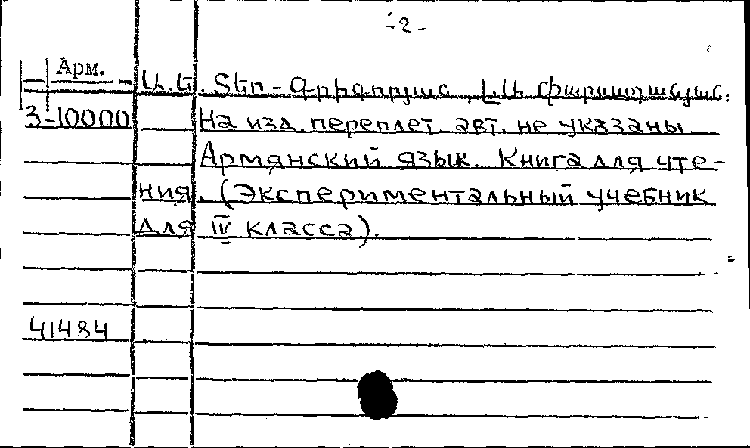 -2-
Арм.
Ա.Ե. Տեր-Գրիգորյան,
3-10000 На изд. переплет. авт. не указаны
Армянский язык. Книга для чте-
ния. (Экспериментальный учебник
для IV класса).
41484